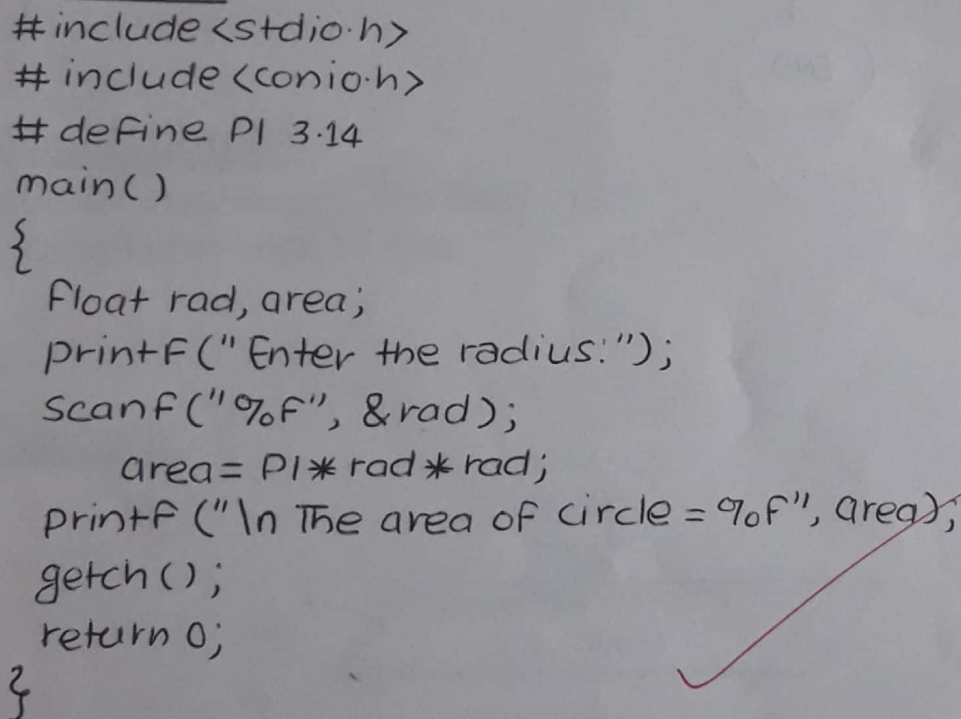 #include <stdio.h>
# include <conio.h>
# define PI 3.14
main()
{
float rad, area;
printf("Enter the radius:");
scanf("%f", &rad);
area= PI* rad* rad;
printf ("\n The area of circle = %f", area);
getch();
return 0;
}